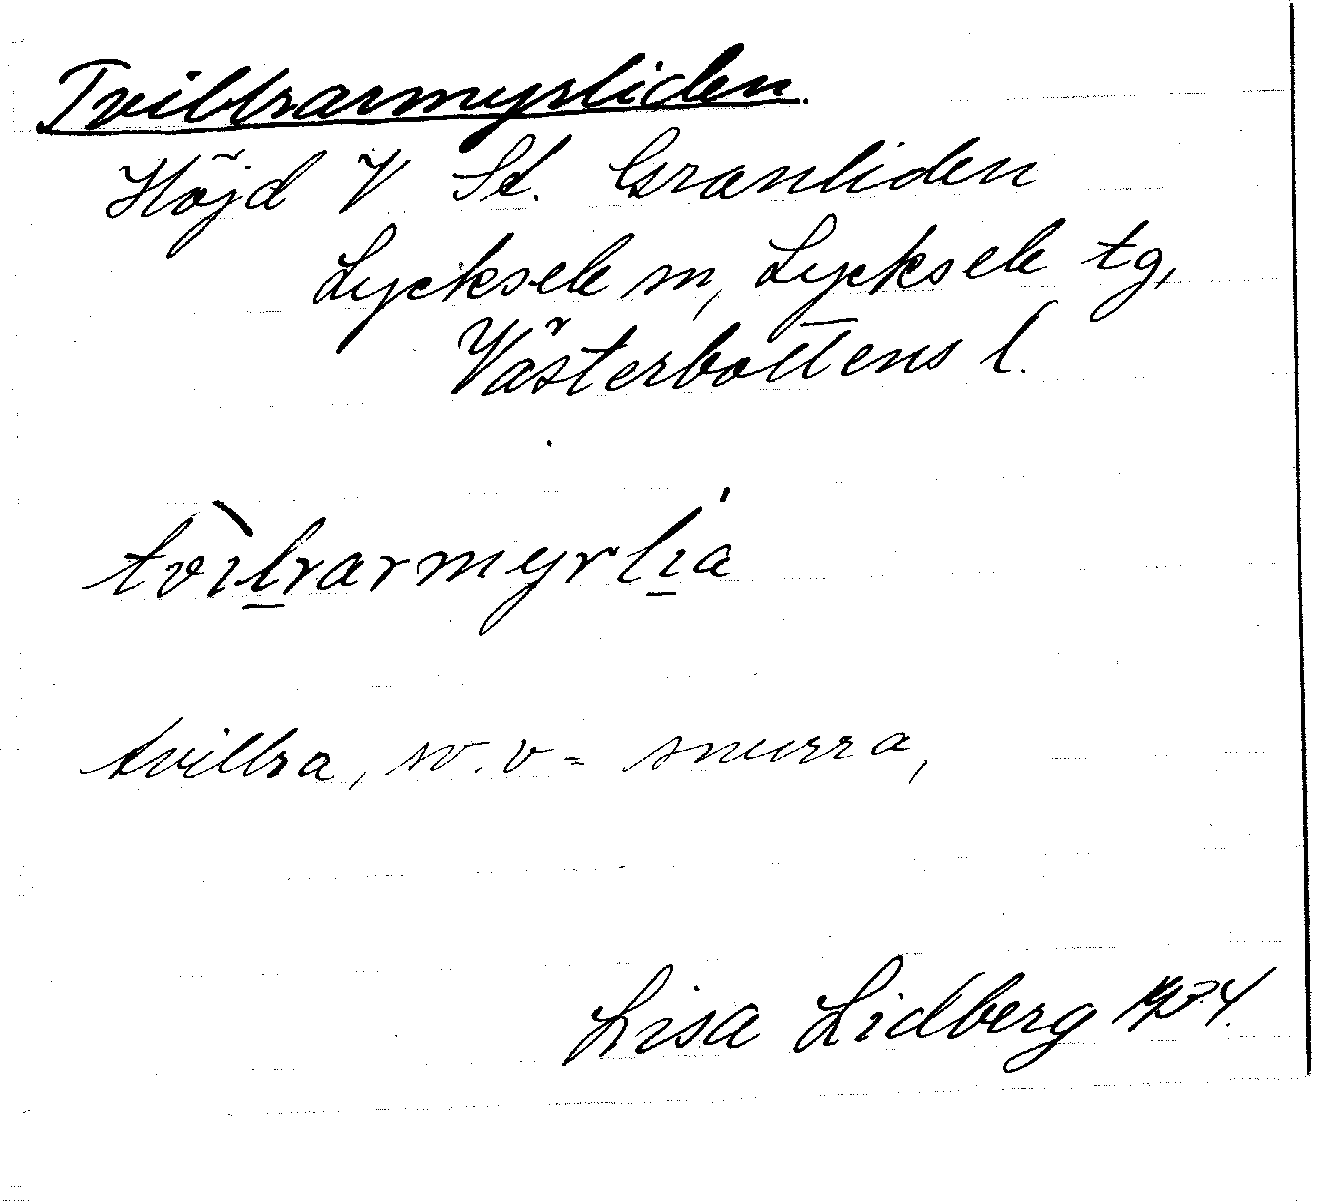 Tvillrarmyrliden.
Höjd V St. Granliden
Lycksele m, Lycksele tg,
Västerbottens l.
tvìlrarmyrlía
tvillra, sv. v = snurra,
Lisa Lidberg